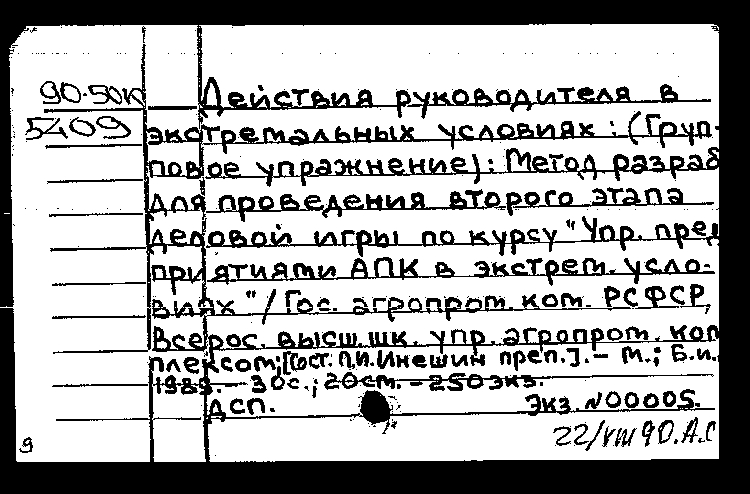 90-50к Действия руководителя в
5409 экстремальных условиях : (Груп-
повое упражнение) : Метод разраб
для проведения второго этапа
деловой игры по курсу "Упр. пред
приятиями АПК в экстрем. усло-
виях" / Гос. агропром. ком. РСФСР,
Всерос. высш. шк. упр. агропром. ком
плексом; [Сост. П.И. Инешин преп.]. – М.; Б.и.,
1989. – 30 с.; 20 см. – 250 экз.
ДСП. Экз. N00005.
22/VIII 90. А.С
9